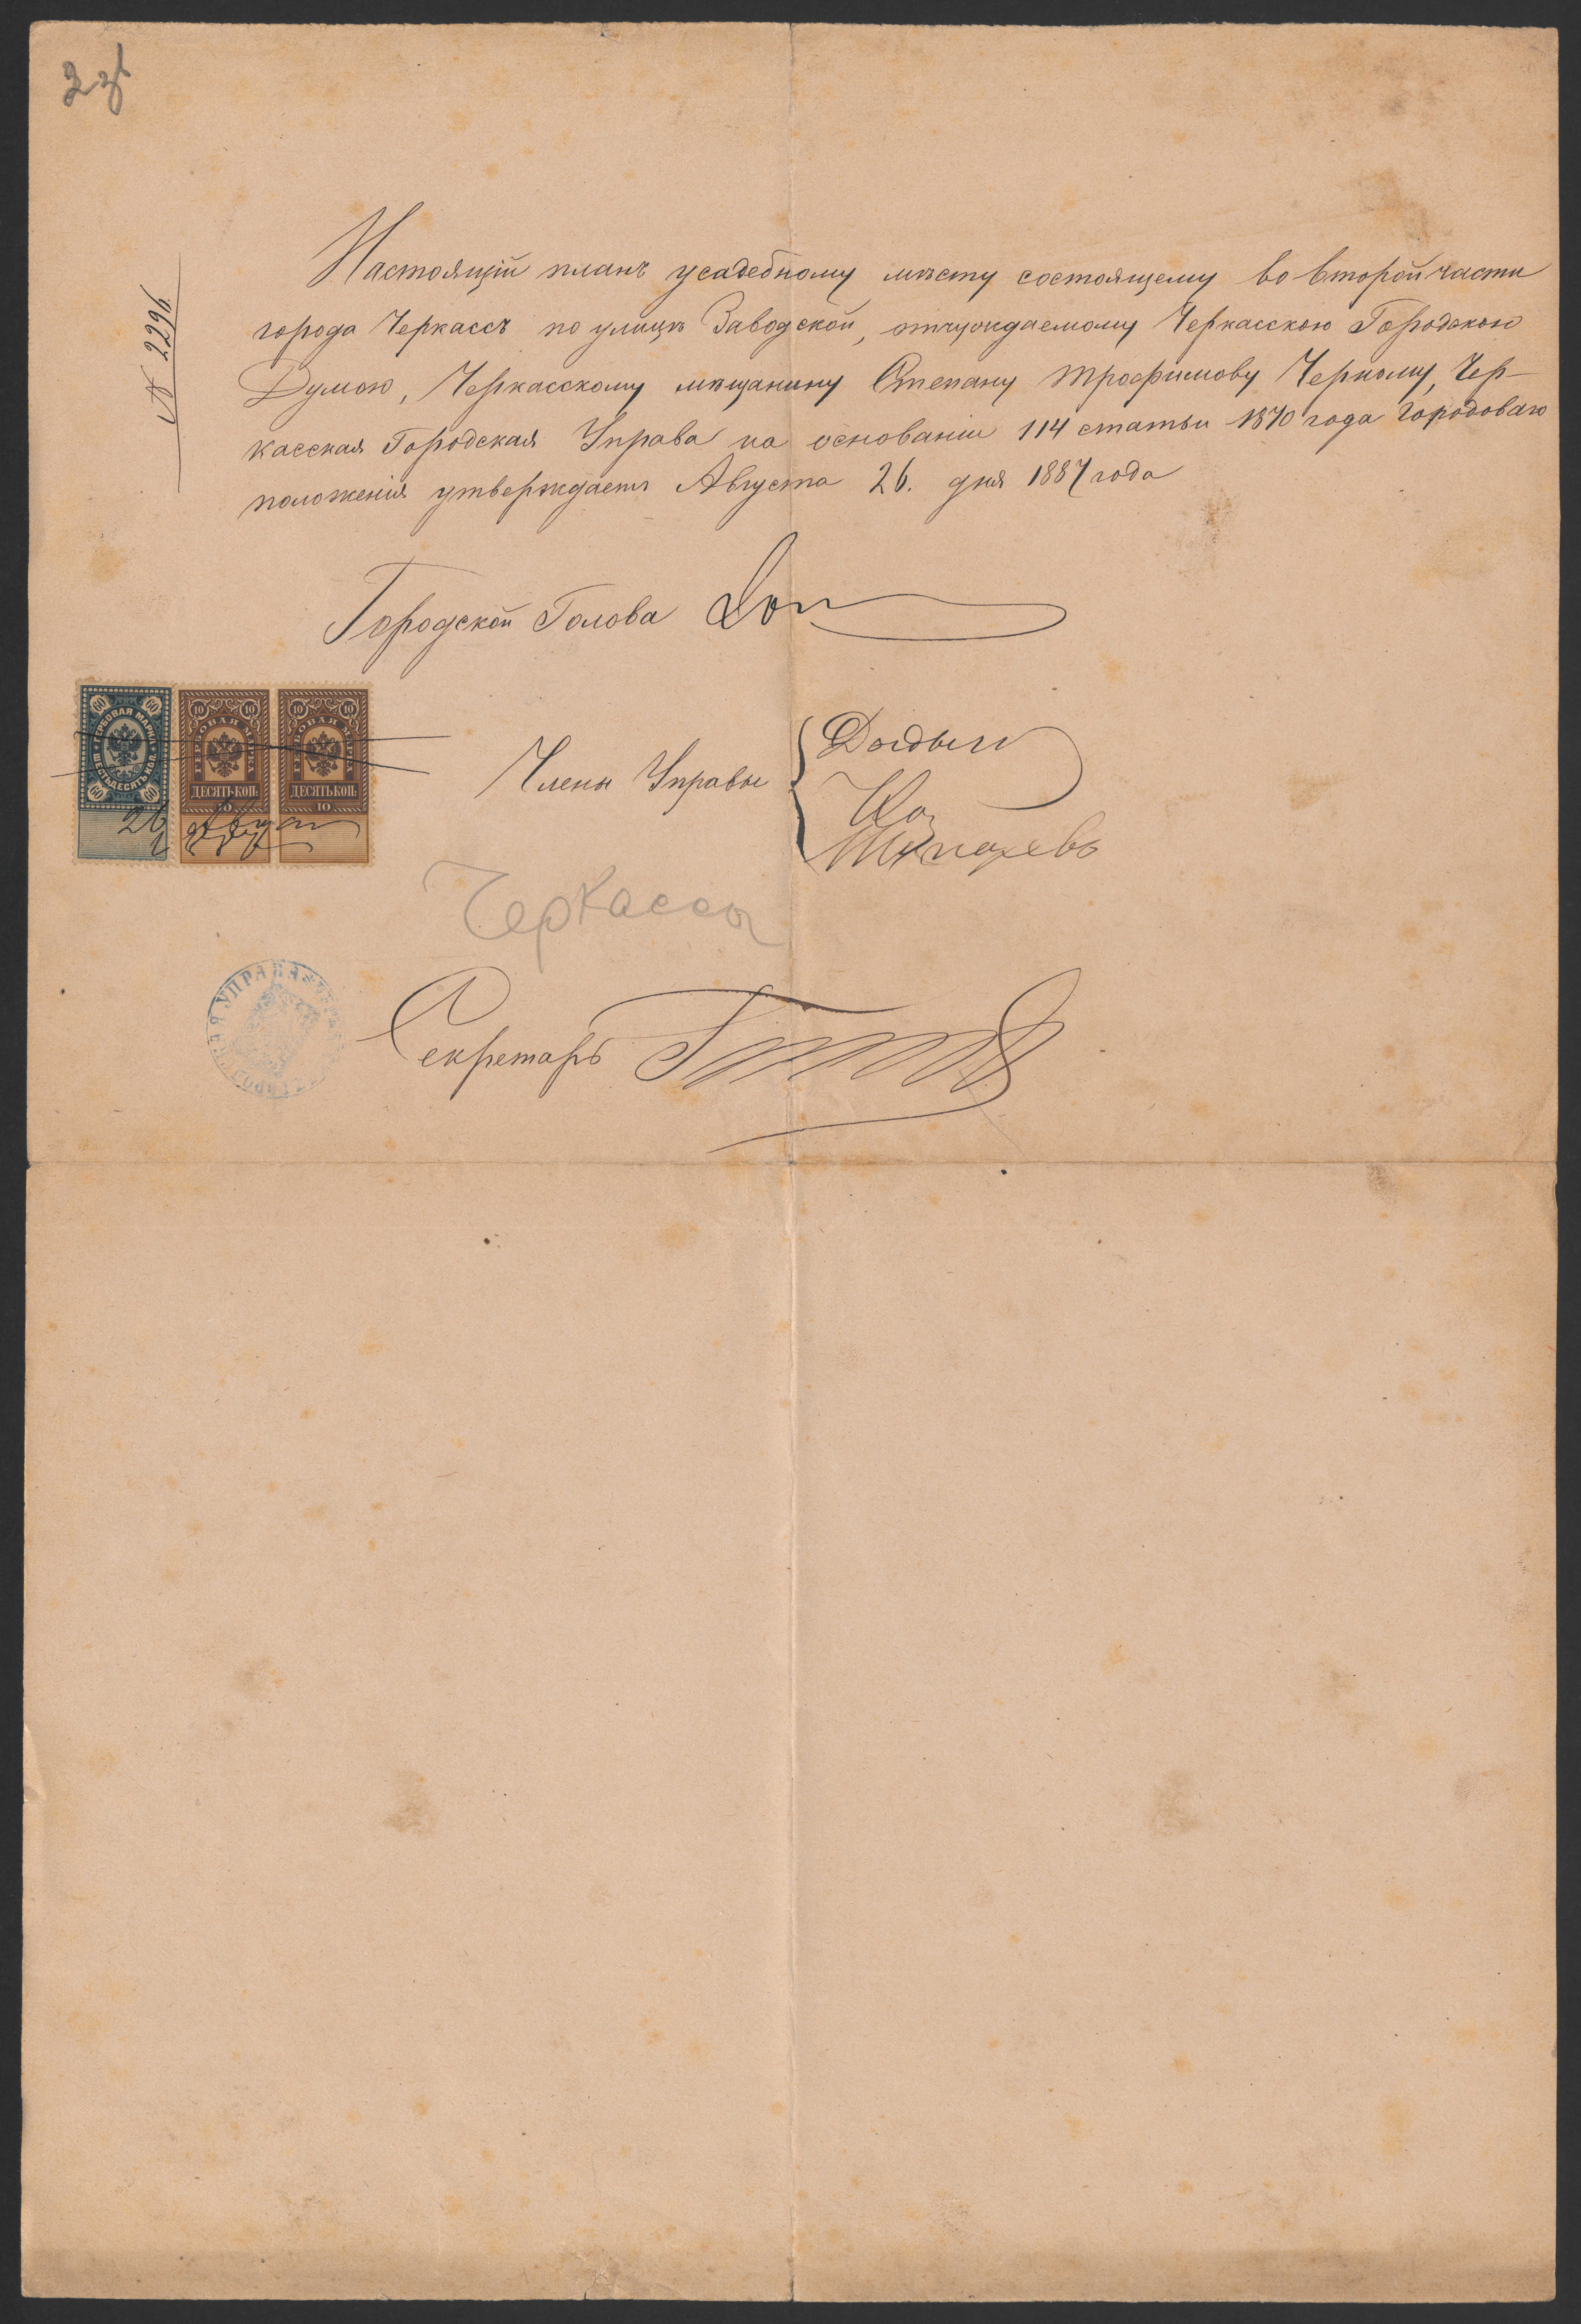 № 2296
Настоящій планъ усадебному мѣсту состоящему во второй части
города Черкассъ по улицѣ Заводской, отчуждаемому Черкасскою Городскою
Думою, Черкасскому мѣщанину Степану Трофимову Черному, Чер-
касская Городская Управа на основаніи 114 статьи 1870 года Городоваго
положенія утверждаетъ Августа 26. дня 1887 года
Городской Голова
ГЕРБОВАЯ МАРКА
ШЕСТЬДЕСЯТЪ КОП.
60 60
60 60
10 10
ГЕРБОВАЯ МАРКА
ДЕСЯТЬ КОП.
10
10 10
ГЕРБОВАЯ МАРКА
ДЕСЯТЬ КОП.
10
26 Август
Члены Управы
Черкассы
УПРАВА
Секретарь